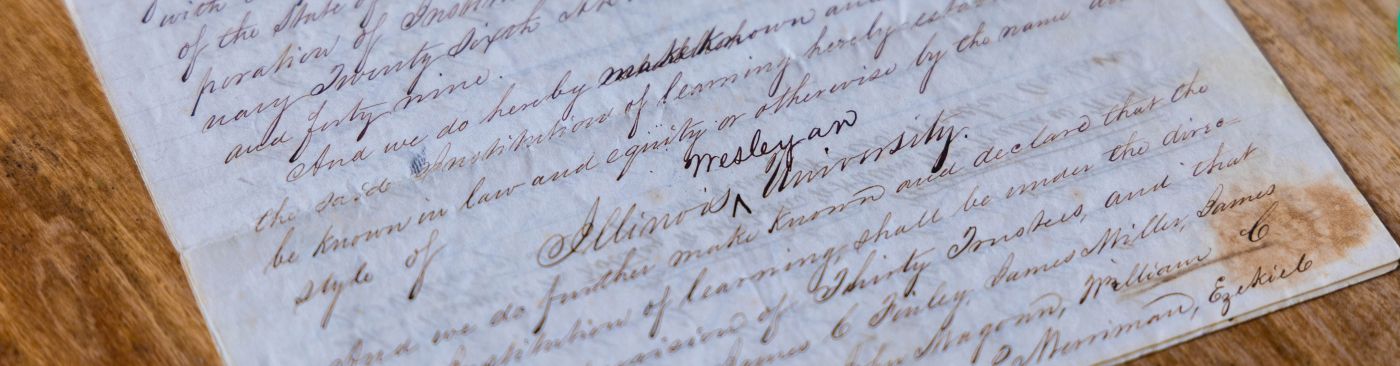 with
of the State of
poration of Instit
uary Twenty Sixth
and forty nine.
And we do hereby make known and
the said Institution of learning hereby estab
be known in law and equity or otherwise by the name and
style of Illinois ^ Wesleyan University.
And we do further make known and declare that the
Institution of learning, shall be under the direc=
vision of Thirty Trustees, and that
James C Finley, James Miller, James
John Magoun, William C
Merriman, Ezekiel